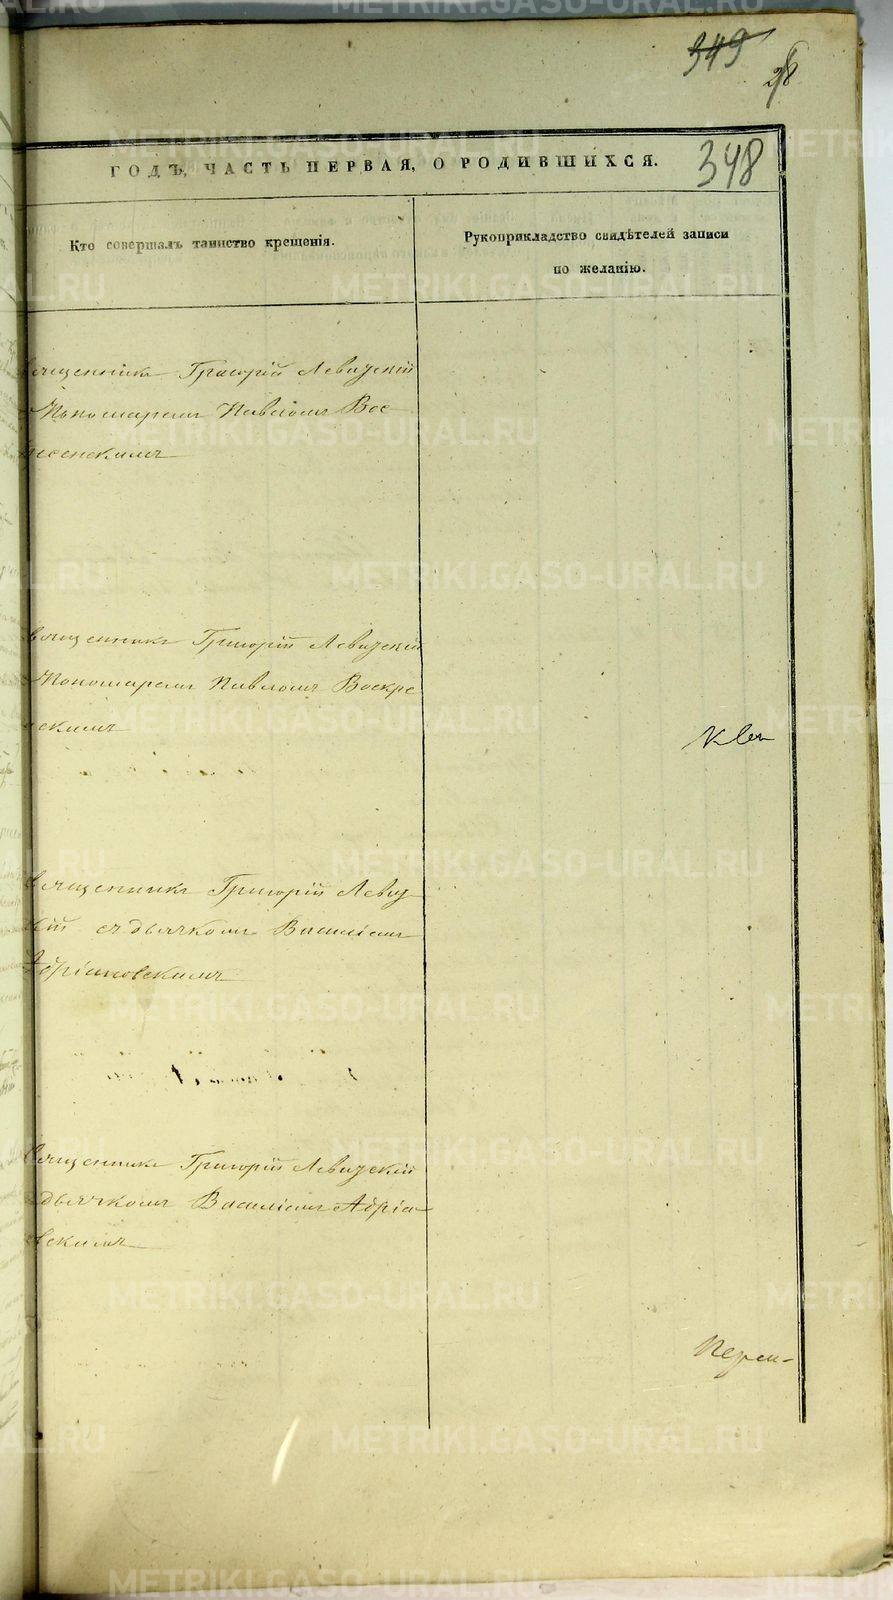 349
28
348
ГОДЪ, ЧАСТЬ ПЕРВАЯ, О РОДИВШИХСЯ.
Кто совершалъ таинство крещенія.
Рукоприкладство свидѣтелей записи
по желанію.
вященникъ Григорій Левицкій
Пономаремъ Павломъ Вос
несенскимъ
вященникъ Григорій Левицкій
Пономаремъ Павломъ Воскре
нскимъ
вященникъ Григорій Левиц
кій съ дьячкомъ Василіемъ
Адріановскимъ
вященникъ Григорій Левицкій
дьячкомъ Василіемъ Адріа
овскимъ
METRIKI.GASO-URAL.RU